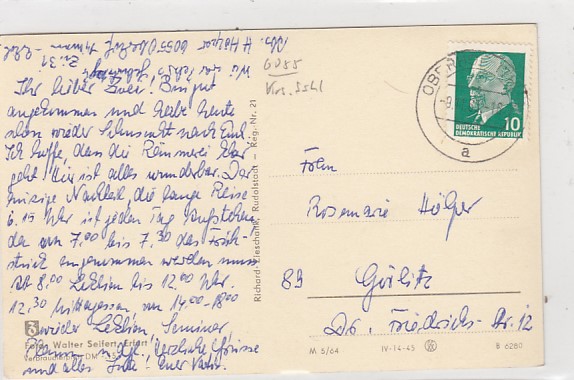 Abs. H. Hölper 6055 Oberhof
Zi. 31
6085
Krs. Suhl
Ihr lieben Zwei! Bin gut
angekommen und habe heute
schon wieder Sehnsucht nach Euch.
Ich hoffe, dass die Räumerei
geht. Hier ist alles wunderbar. Der
einzige Nachteil, die lange Reise
6.15 Uhr ist jeden Tag Aufstehen,
da von 7.00 bis 7.30 das Früh-
stück eingenommen werden muss
Ab 8.00 Lektion bis 12.00 Uhr.
12.30 Mittagessen, von 14.00-18.00
wieder Lektion, Seminar
herzliche Grüsse
und alles Gute! Euer Vati.
Foto: Walter Seifert, Erfurt
Verbraucherpr. DM
Richard Zieschank, Rudolstadt - Reg.-Nr. 21
OBERHOF
a
DEUTSCHE
DEMOKRATISCHE REPUBLIK
10
Fam.
Rosemarie Hölper
89 Görlitz
Dr. Friedrichs-Str. 12
M 5/64 IV-14-45 B 6280